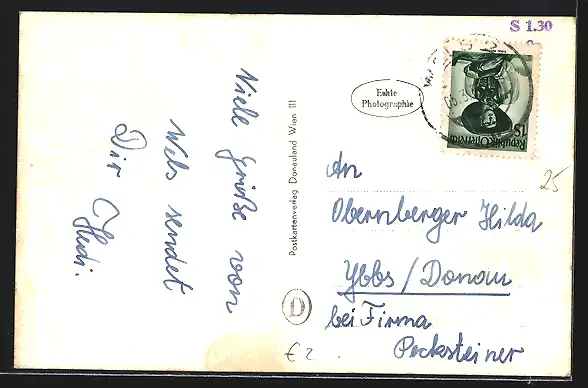 Viele Grüße von
Wels sendet
Dir Hedi.
Postkartenverlag Donauland Wien III
D
€ 2.
S 1.30
Echte
Photographie
1S
Republik Österreich
25
An
Obernberger Hilda
Ybbs / Donau
bei Firma
Pecksteiner